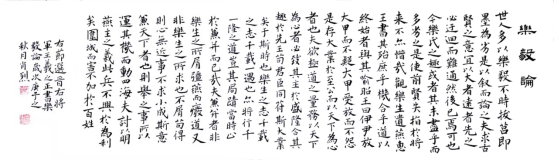 樂毅論
世人多以樂毅不時拔莒即
墨為劣是以叙而論之夫求古
賢之意宜以大者遠者先之
必迂迴而難通然後已焉可也
今樂氏之趣或者其未盡乎而
多劣之是使前賢失指於將
來不亦惜哉觀樂生遺燕惠
王書其殆庶乎機合乎道以
終始者與其喻昭王曰伊尹放
大甲而不疑大甲受放而不怨
是存大業於至公而以天下為心
者也夫欲極道之量務以天下
為心者必致其主於盛隆合其
趣於先王苟君臣同符斯大業定
矣于斯時也樂生之志千載
之志千載一遇也亦將行千載
一隆之道豈其局蹟當時止
於兼并而已哉夫兼并者非
樂生之所屑彊燕而廢道又
非樂生之所求也不屑苟得
則心無近事不求小成斯意
兼天下者也則舉齊之事所以
運其機而動四海也夫討齊以明
燕主之義此兵不興於為利
矣圍城而害不加於百姓
右節選晉右將
軍王羲之正書樂
毅論歲次庚子之
秋月